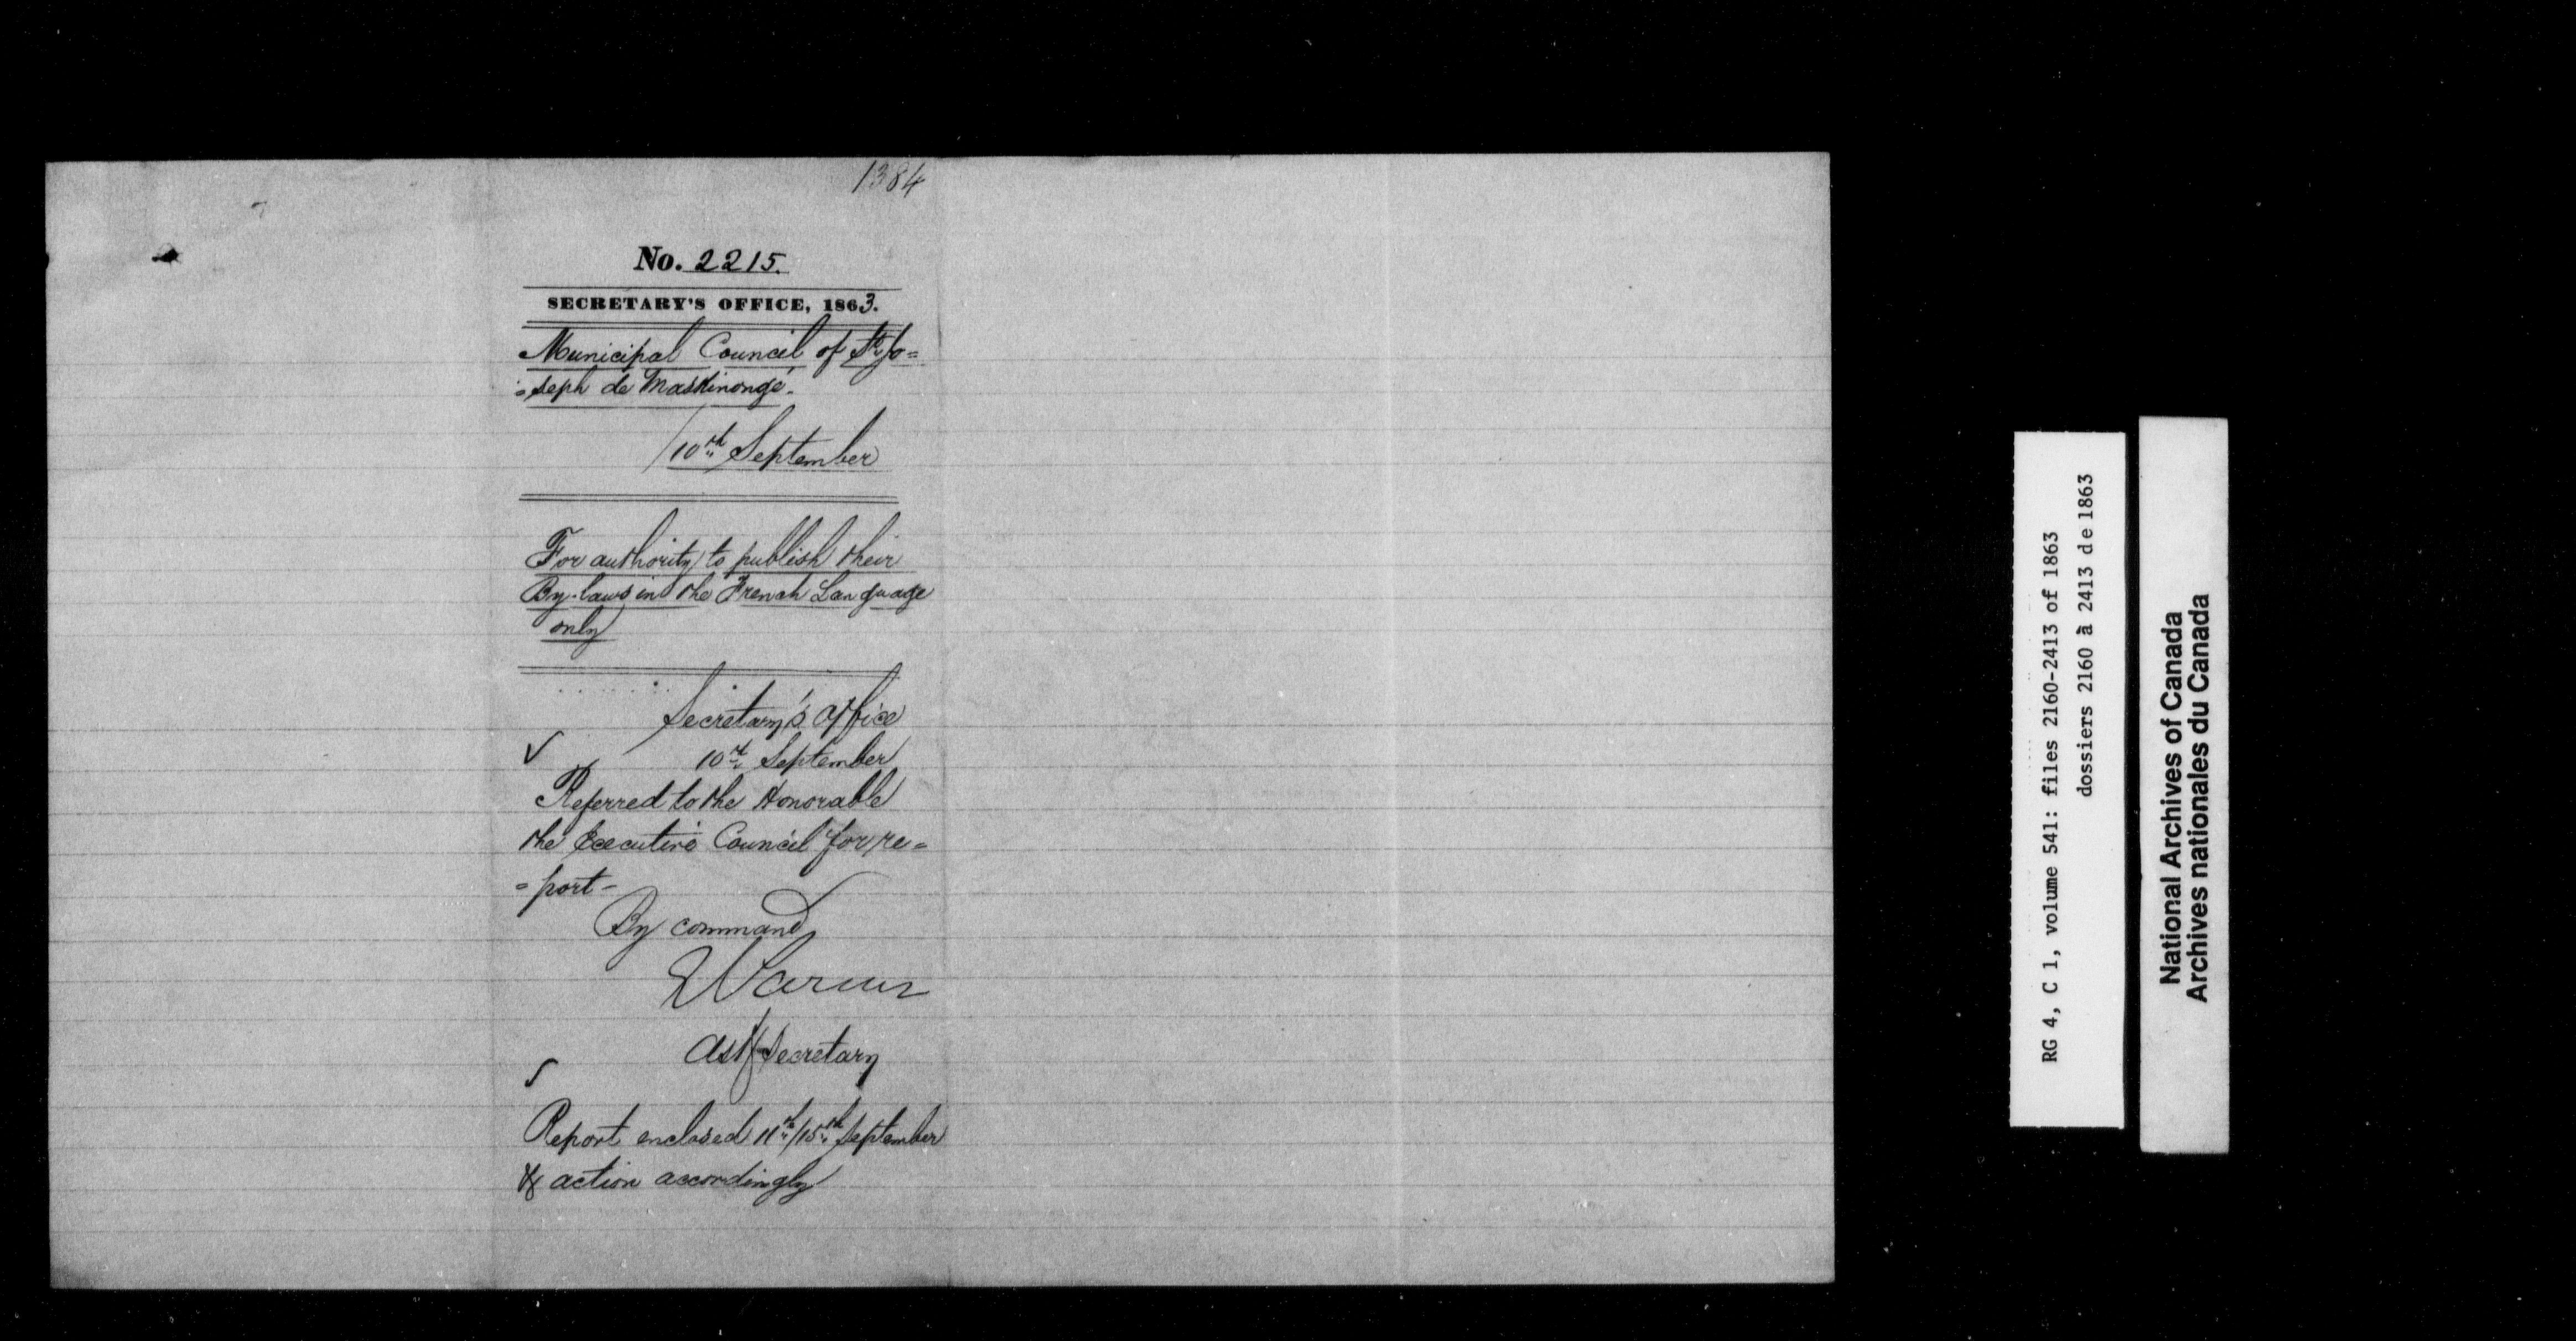 1384
No. 2215.
SECRETARY'S OFFICE, 1863.
Municipal Council of St Jo=
=seph de Maskinongé.
10th September
For authority to publish their
By-laws in the French Language
only
Secretary's Office
10th September
Referred to the Honorable
the Executive Council for re=
=port-
By command
Asst Secretary
Report enclosed 11th/15th September
& action accordingly
RG 4, C 1, volume 541: files 2160-2413 of 1863
dossiers 2160 à 2413 de 1863
National Archives of Canada
Archives nationales du Canada